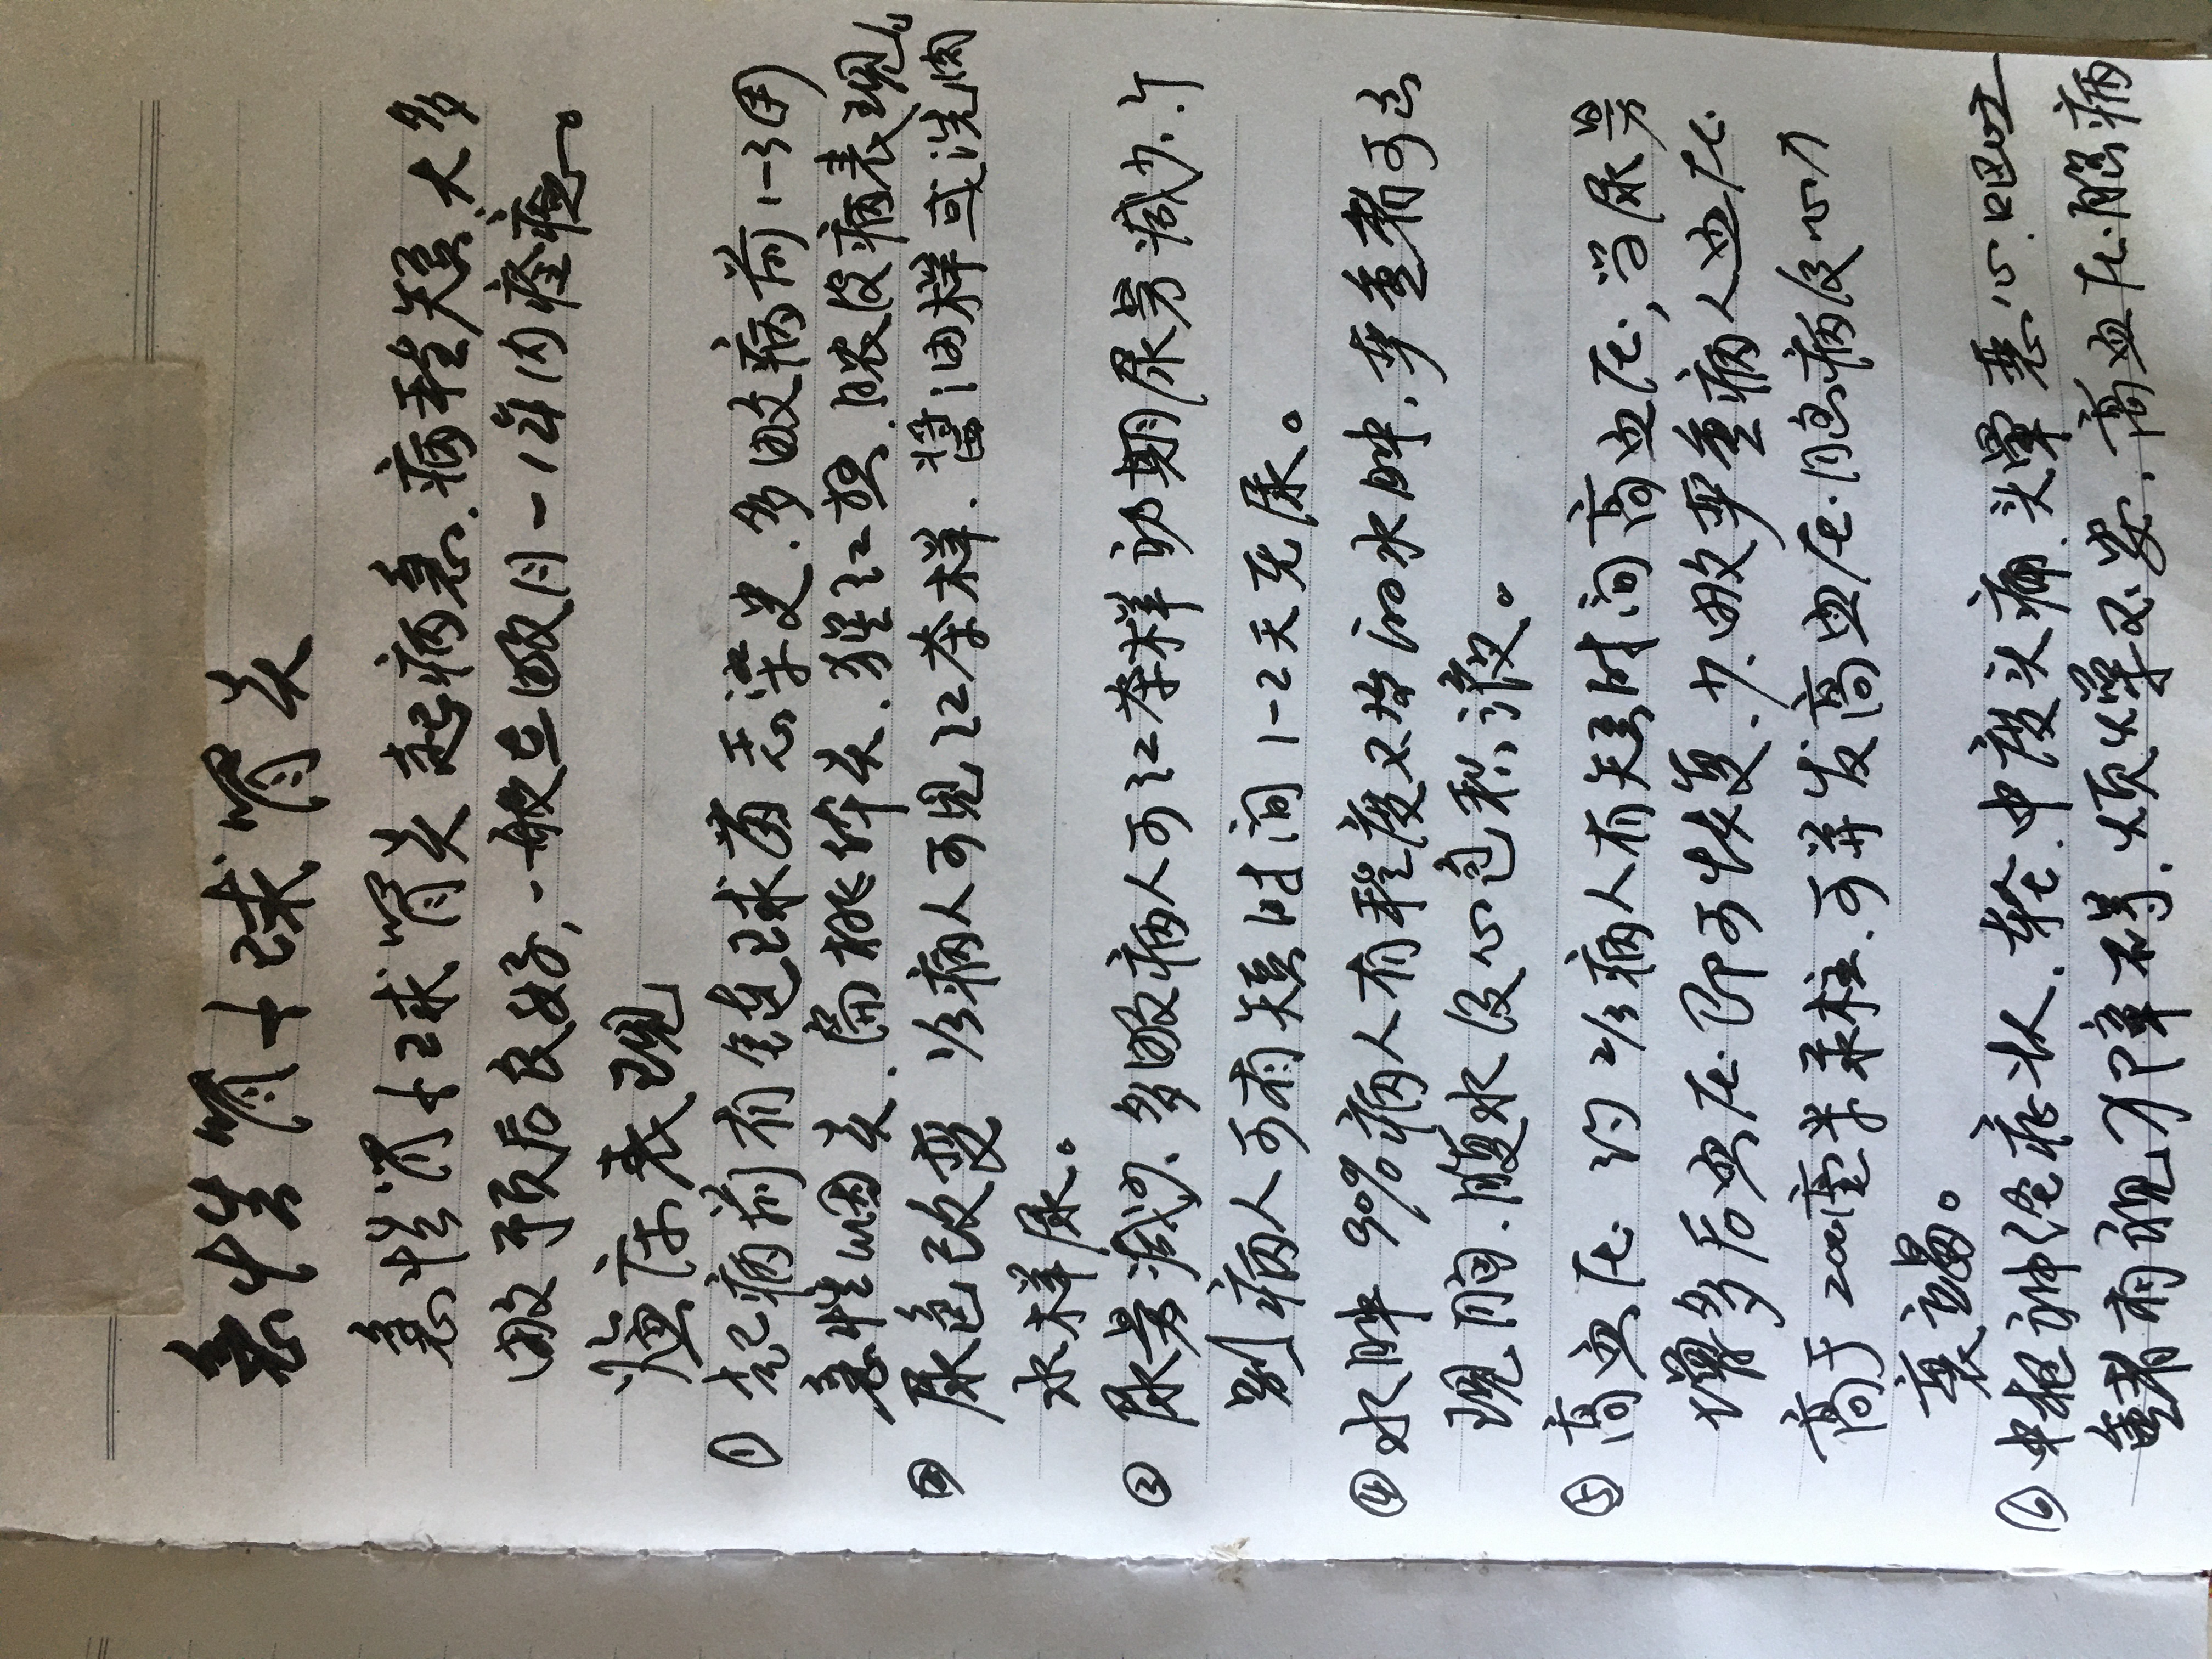 急性肾小球肾炎
急性肾小球肾炎起病急、病程短、大多
数预后良好,一般在数月-1年内痊癒。
临床表现
① 起病前有链球菌感染史、多数病前1-3周
急性咽炎、扁桃体炎、猩红热、脓皮病表现。
② 尿色改变 1/3病人可见红茶样、酱油样或洗肉
水样尿。
③ 尿量减少、多数病人可红茶样初期尿量减少、个
别病人可有短时间1-2天无尿。
④ 水肿 90%病人有程度不等的水肿、严重者可出
现胸、腹水及心包积液。
⑤ 高血压 约2/3病人有短时间高血压,当尿量
增多后血压即可恢复、少数严重病人血压
高于200毫米汞柱、可并发高血压脑病及心力
衰竭。
⑥ 中枢神经症状、轻、中度头痛、头晕恶心、呕吐
重者有视力障碍、烦燥不安、高血压脑病